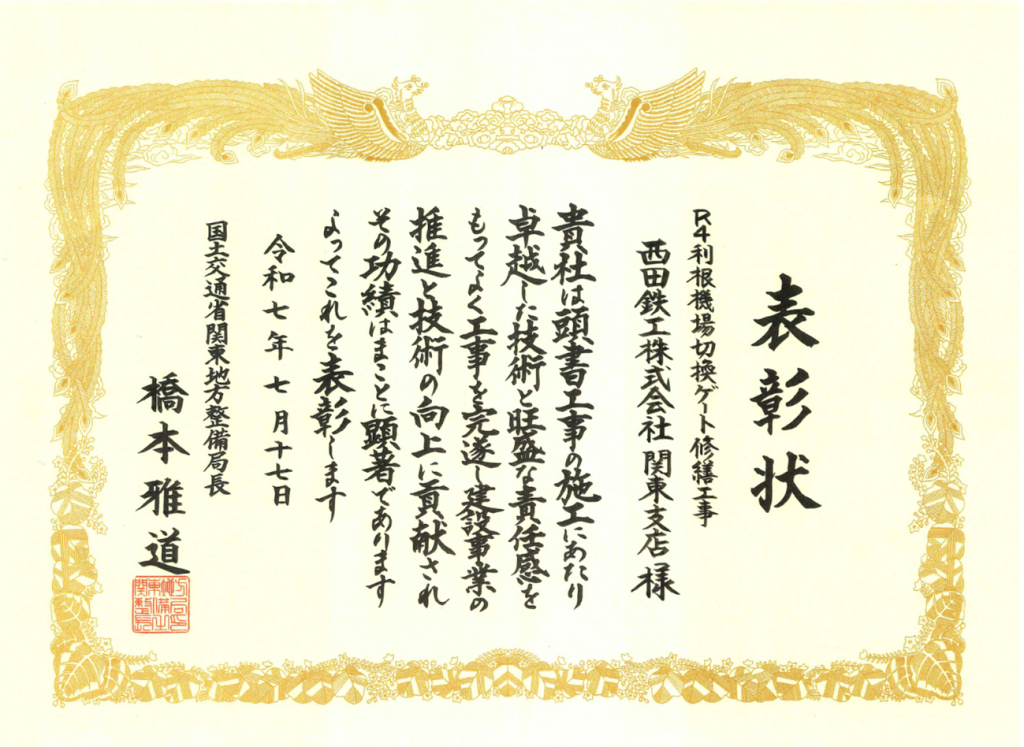 表彰状
R4利根機場切換ゲート修繕工事
西田鉄工株式会社関東支店様
貴社は頭書工事の施工にあたり
卓越した技術と旺盛な責任感を
もってよく工事を完遂し建設事業の
推進と技術の向上に貢献され
その功績はまことに顕著であります
よってこれを表彰します
令和七年七月十七日
国土交通省関東地方整備局長
橋本雅道